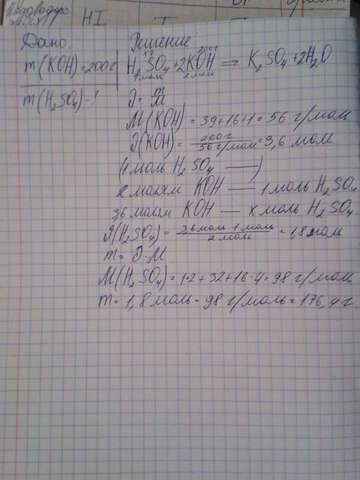 HI
Дано: Решение
m(KOH)=200г H₂SO₄+2KOH = K₂SO₄+2H₂O
1 моль 2 моль
m(H₂SO₄)-?
M(KOH)=39+16+1=56 г/моль
(KOH)=200г/56 г/моль=3,6 моль
1 моль H₂SO₄
2 моль KOH — 1 моль H₂SO₄
3,6 моль KOH — x моль H₂SO₄
(H₂SO₄)=3,6 моль·1 моль/2 моль=1,8 моль
m=
M(H₂SO₄)=1·2+32+16·4=98 г/моль
m=1,8 моль·98 г/моль=176,4 г.